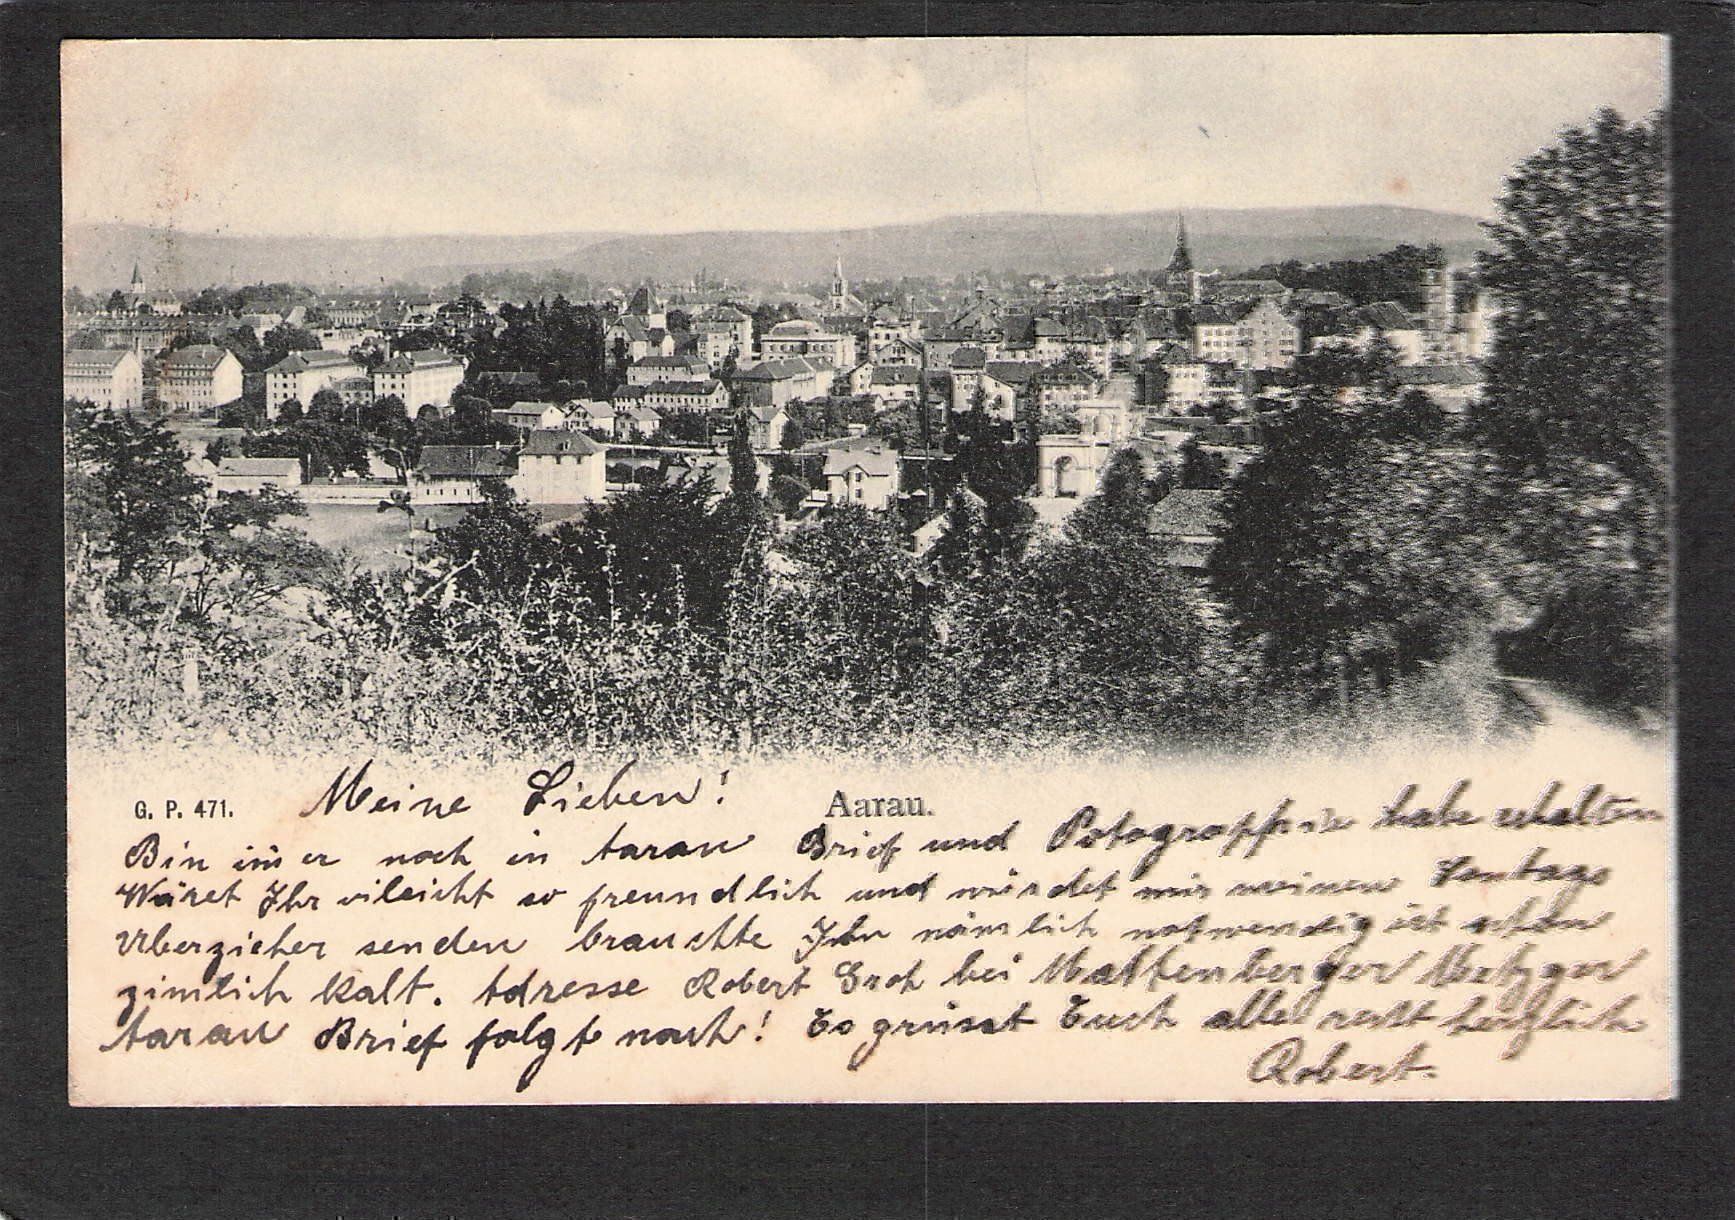 G. P. 471.
Meine Lieben!
Aarau.
Bin imer noch in Aarau Brief und Potograpfie habe erhalten
Wäret Ihr vileicht so freundlich und würdet mir meinen Sontags
Uberzieher senden brauchte Ihn nämlich notwendig ist schon
zimlich kalt. Adresse Robert Groh bei Mattenberger Metzger
Aarau Brief folgt nach! Es grüsst Euch alle recht herzlich
Robert.